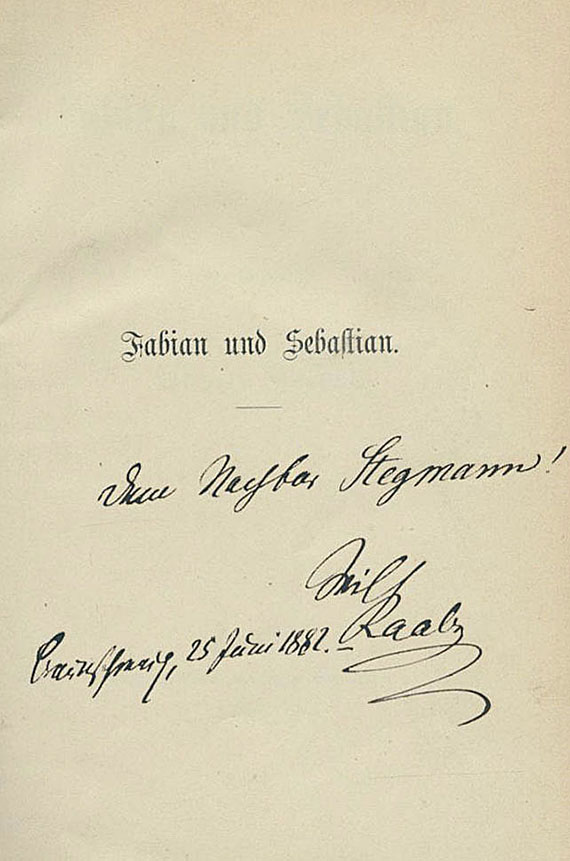 Fabian und Sebastian.
Dem Nachbar Stegmann!
Wilh
Raabe
Braunschweig, 25 Juni 1882.